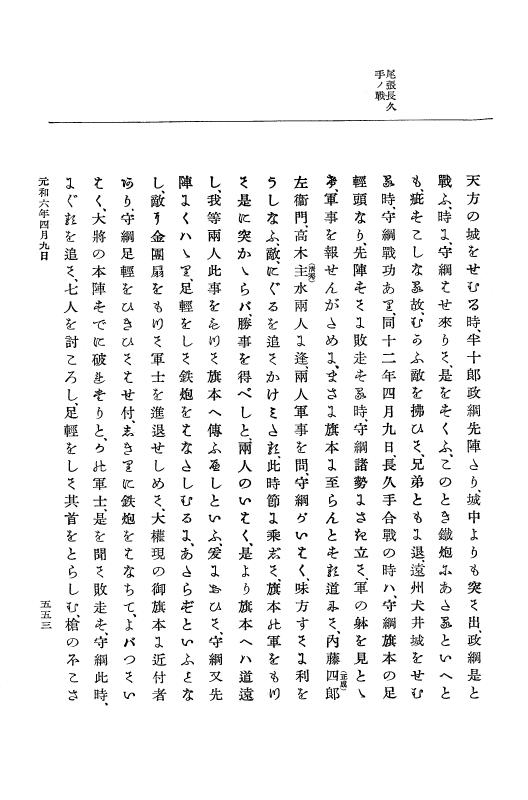 尾張長久
手ノ戰
天方の城をせむる時、半十郎政綱先陣たり、城中よりも突て出、政綱是と
戰ふ、時に守綱はせ來りて、是をすくふ、このとき鐵炮にあたるといへと
も、疵すこしなる故、むかふ敵を拂ひて、兄弟ともに退、遠州犬井城をせむ
る時、守綱戰功あり、同十二年四月九日、長久手合戰の時ハ、守綱旗本の足
輕頭なり、先陣すてに敗走する時、守綱諸勢にさき立て、軍の躰を見とゝ
け、軍事を報せんがために、まさに旗本に至らんとする道にて、内藤四郎(正成)
左衞門高木主水(清秀)兩人に逢、兩人軍事を問、守綱がいはく、味方すてに利を
うしなふ、敵にぐるを追てかけみたれ、此時節に乘して、旗本の軍をもつ
て是に突かゝらバ、勝事を得べしと、兩人のいはく、是より旗本へハ道遠
し、我等兩人此事をもつて旗本へ傳ふへしといふ、爰におひて、守綱又先
陣にくハヽり足輕をして鉄炮をはなさしむるに、あたらずといふとな
し、敵り金團扇をもつて軍士を進退せしめて、大權現の御旗本に近付者
あり、守綱足輕をひきひてはせ付、しきりに鉄炮をはなちて、よバつてい
はく、大將の本陣すでに破れたりと、かの軍士、是を聞て敗走す、守綱此時、
にぐるを追て、七人を討ころし、足輕をして其首をとらしむ、槍のみこさ
元和六年四月九日
五五三